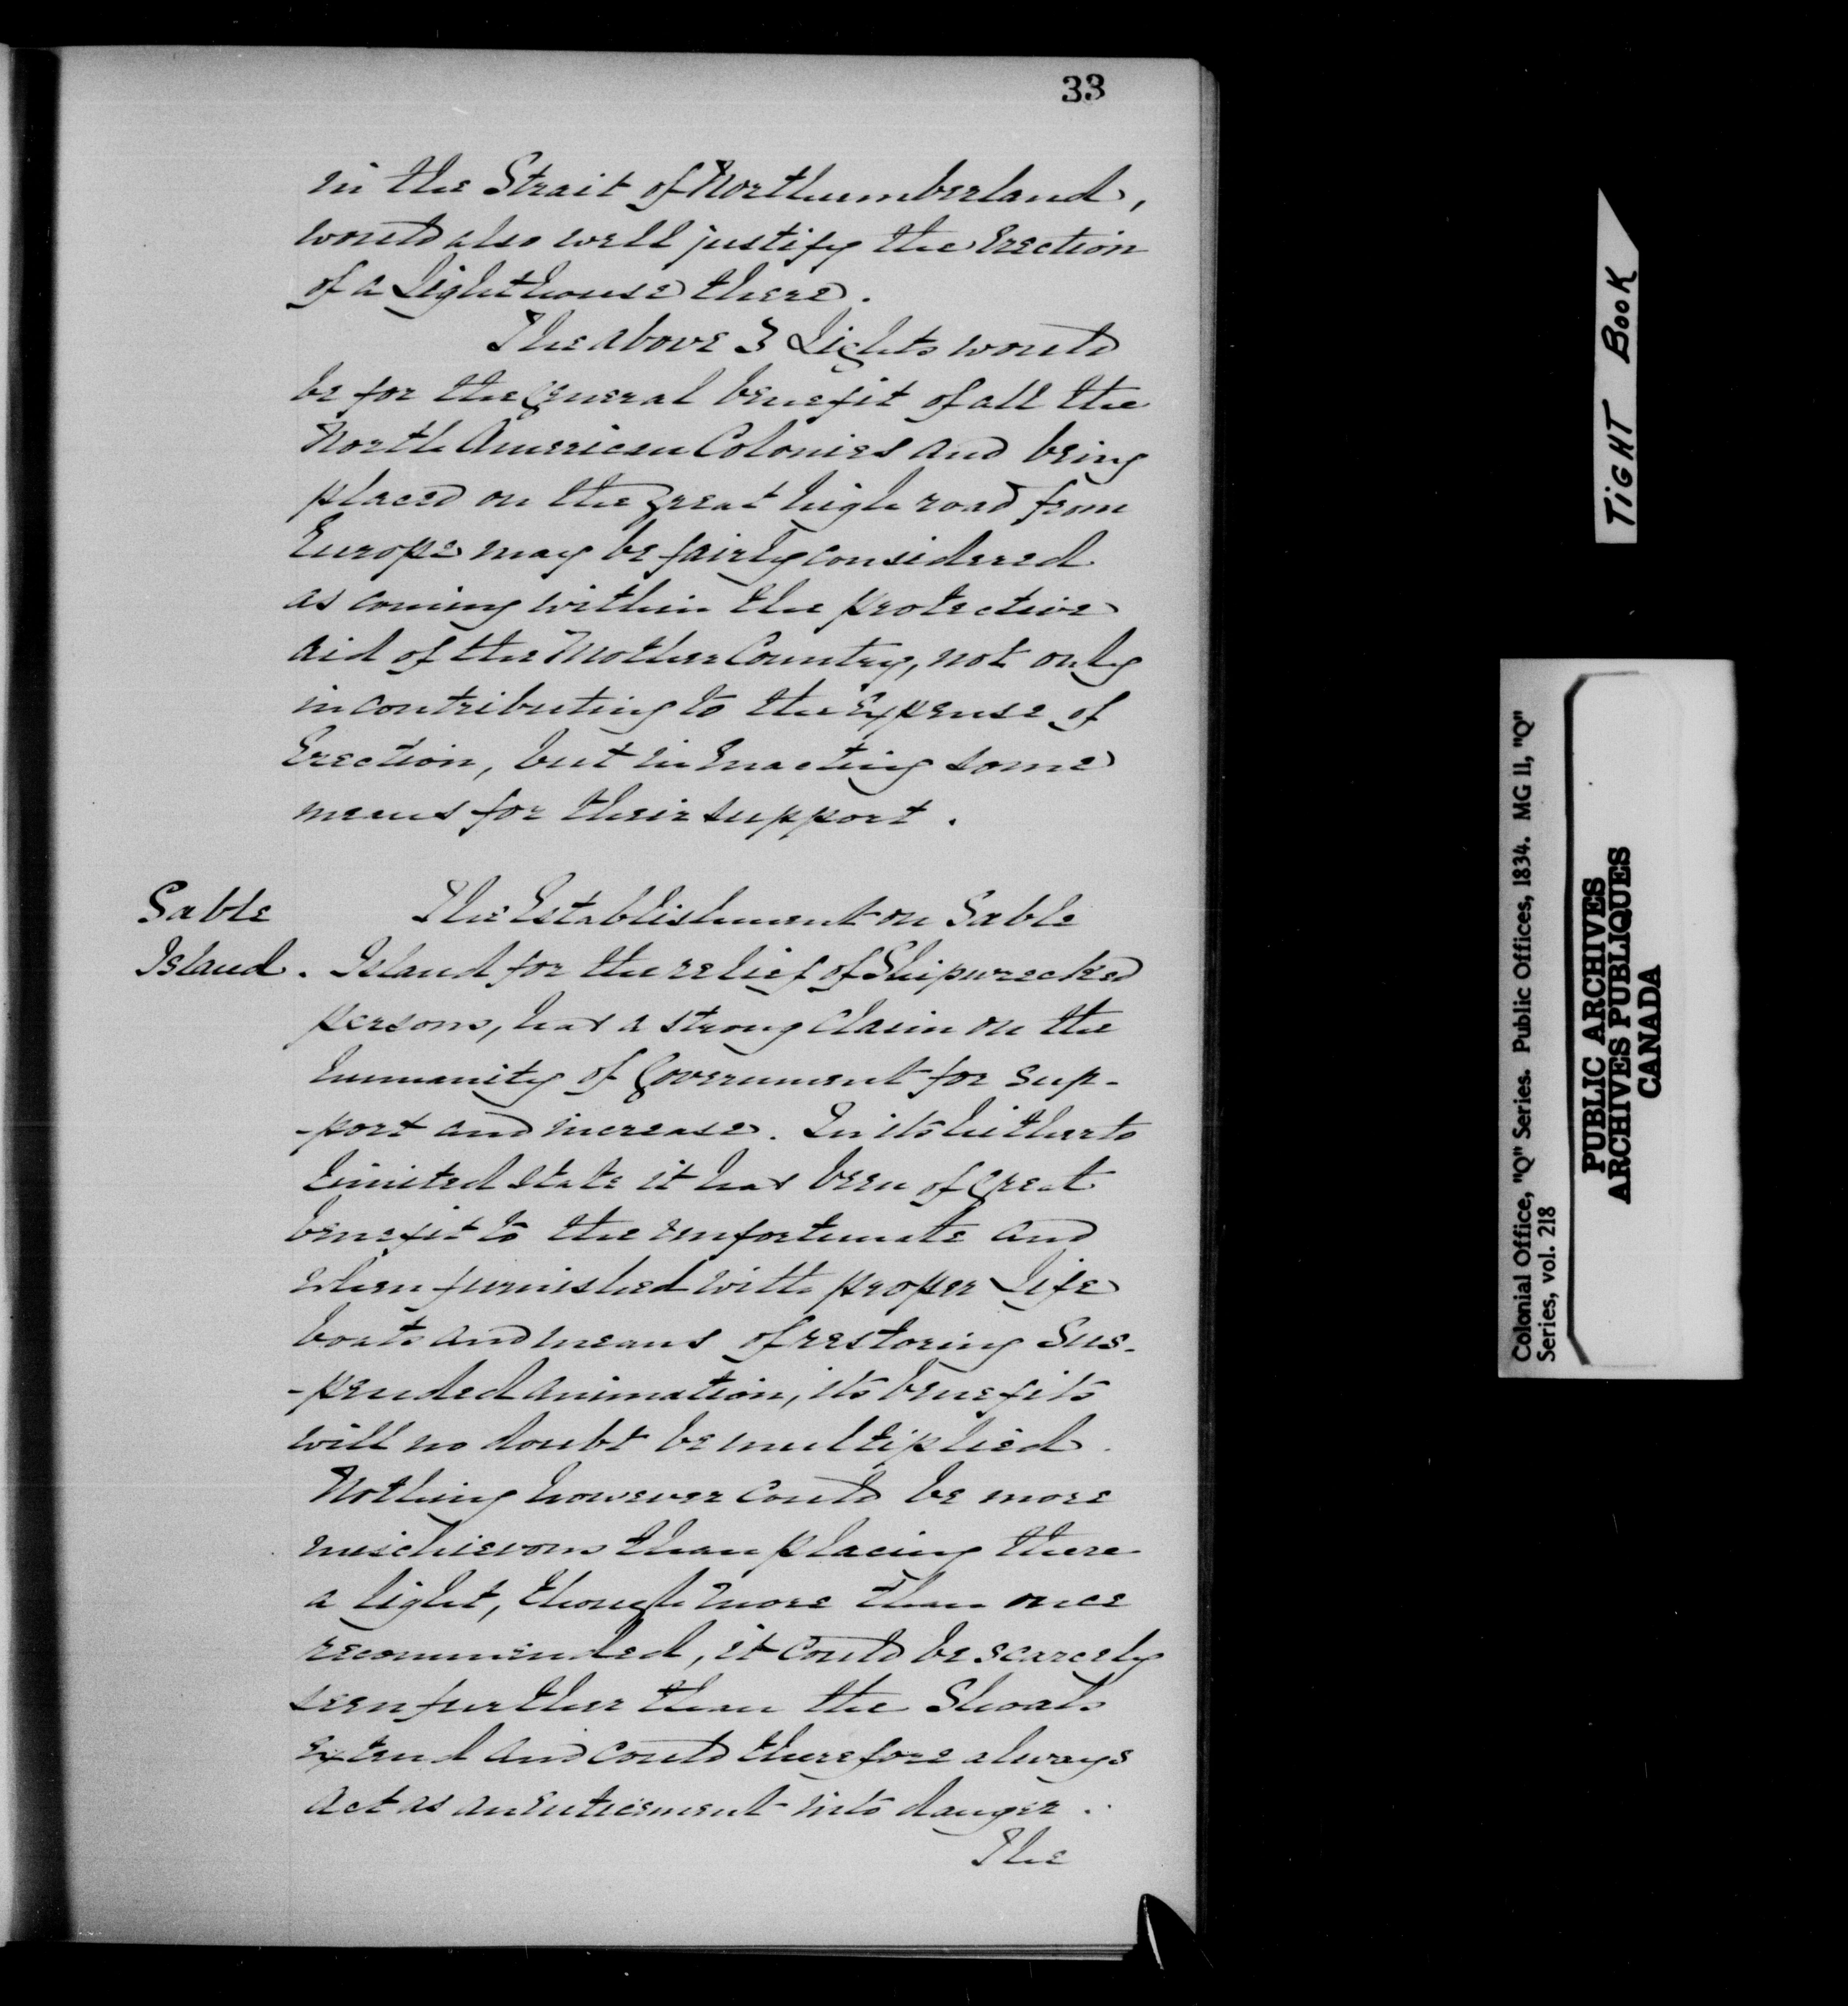 33
in the Strait of Northumberland,
would also well justify the Erection
of a Lighthouse there.
The above 3 Lights would
be for the general benefit of all the
North American Colonies and being
placed on the great high road from
Europe may be fairly considered
as coming within the protective
aid of the Mother Country, not only
in contributing to the Expense of
Erection, but in Enacting some
means for their support.
Sable
Island.
The Establishment on Sable
Island for the relief of Shipwrecked
persons, has a strong claim on the
humanity of Government for sup-
-port and increase. In its hitherto
limited state it has been of great
benefit to the unfortunate and
when furnished with proper Life
boats and means of restoring Sus-
-pended animation, its benefits
will no doubt be multiplied.
Nothing however could be more
mischievous than placing there
a light, though more than once
recommended, it could be scarcely
seen further than the Shoals
Extend and could therefore always
act as an enticement into danger.
The
TIGHT BOOK
Colonial Office, "Q" Series. Public Offices, 1834. MG 11, "Q"
Series, vol. 218
PUBLIC ARCHIVES
ARCHIVES PUBLIQUES
CANADA